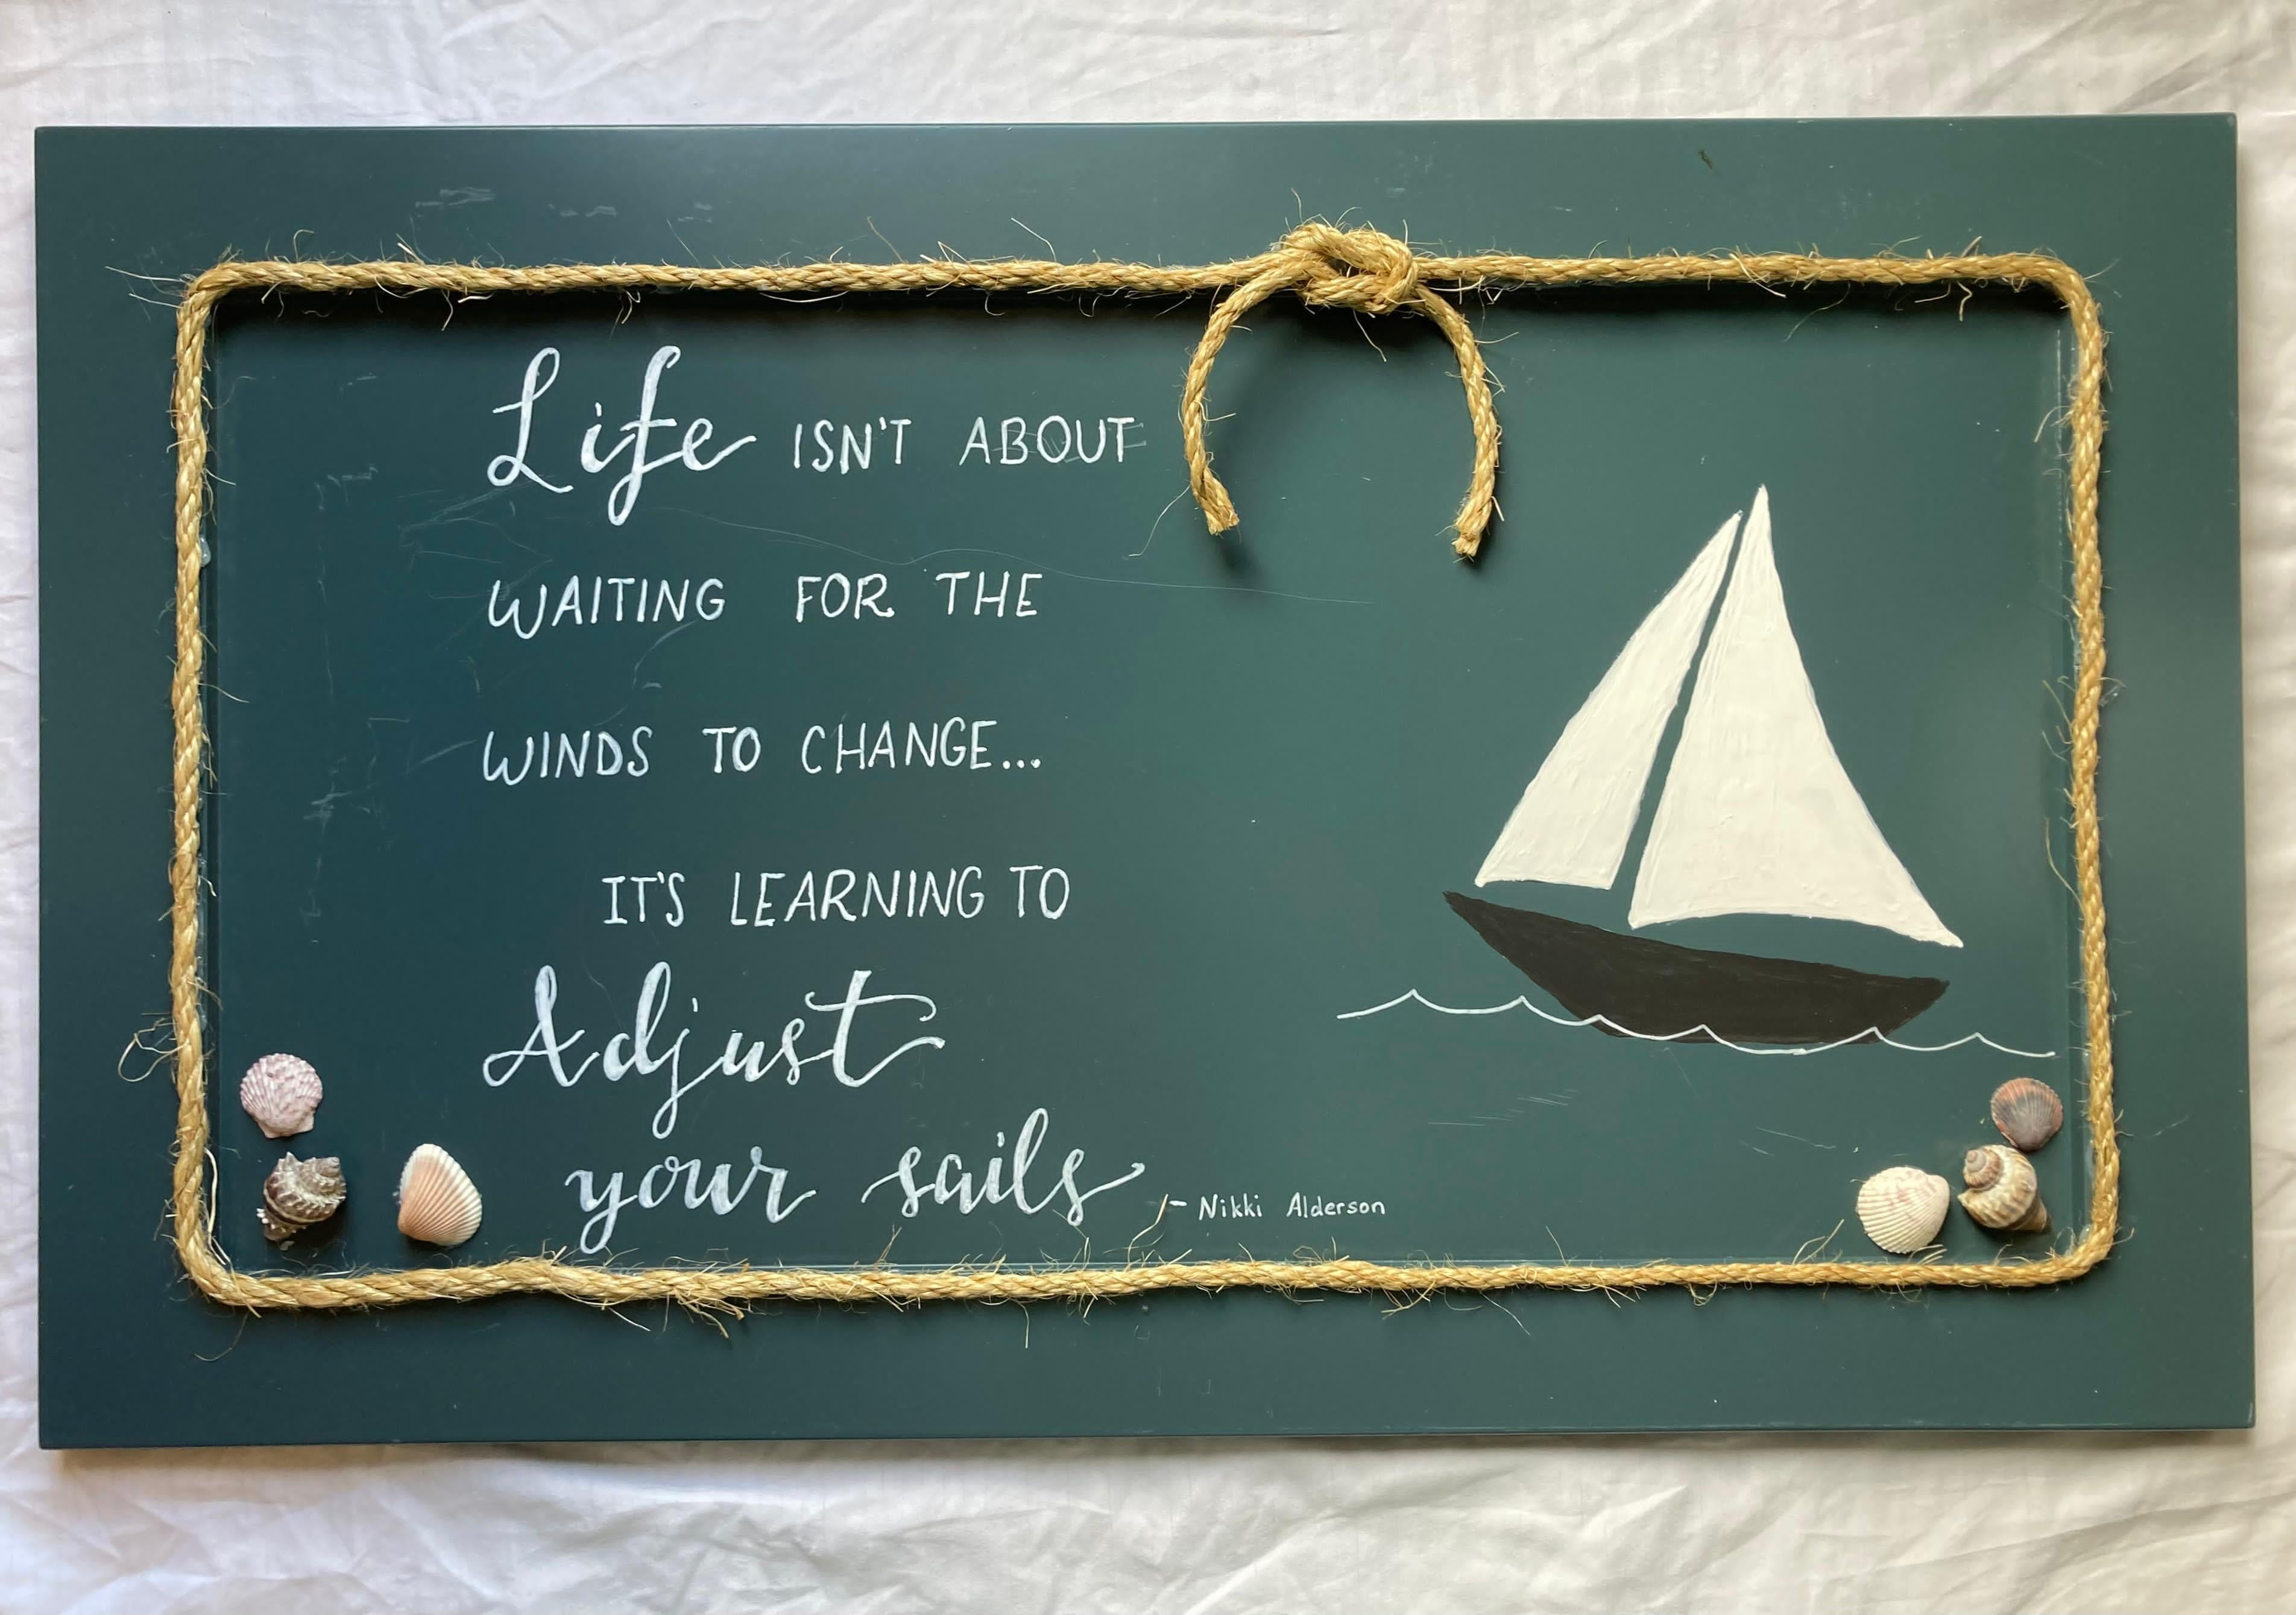 Life ISN'T ABOUT
WAITING FOR THE
WINDS TO CHANGE...
IT'S LEARNING TO
Adjust
your sails
- Nikki Alderson